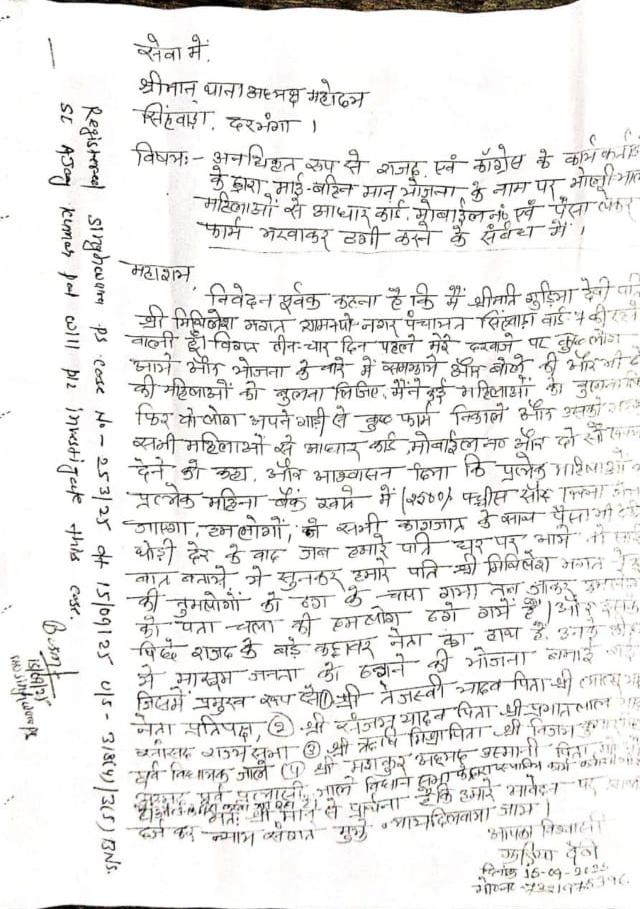 सेवा में,
श्रीमान् थाना अध्यक्ष महोदय
सिंहवाड़ा, दरभंगा ।
विषय:- अनधिकृत रूप से राजद एवं कॉंग्रेस के कार्यकर्ता
के द्वारा माई-बहिन मान योजना के नाम पर
महिलाओं से आधार कार्ड, मोबाईल नं० एवं पैसा लेकर
फार्म भरवाकर ठगी करने के संबंध में ।
महाशय,
निवेदन पूर्वक कहना है कि मैं श्रीमति गुड़िया देवी पति
श्री मिथिलेश भगत नगर पंचायत सिंहवाड़ा वार्ड की
वाली हूँ। विगत तीन-चार दिन पहले मेरे दरवाजे पर कुछ लोग
आये और योजना के बारे में समझाये और बोले की और भी
की महिलाओं को बुलवा लिजिए, मैंने कई महिलाओं को
फिर वो लोग अपने गाड़ी से कुछ फार्म निकाले और उसको
सभी महिलाओं से आधार कार्ड, मोबाईल नं० और दो सौ
देने को कहा, और आश्वासन दिया कि प्रत्येक महिलाओं
प्रत्येक महिना बैंक खाते में (2500/- पच्चीस सौ
जाएगा, हमलोगों ने सभी कागजात के साथ पैसा भी
थोड़ी देर के बाद जब हमारे पति घर पर आये तो
बात बताये ये सुनकर हमारे पति श्री मिथिलेश भगत
की तुमलोगों को ठग के चला गया तब जाकर हमलोग
को पता चला की हमलोग ठगे गये हैं। और इसके
पिछे राजद के बड़े कद्दावर नेता का हाथ है,
से मासूम जनता को ठगने की योजना बनाई
जिसमें प्रमुख रूप से ① श्री तेजस्वी यादव पिता श्री लालू
नेता प्रतिपक्ष, ② श्री संजय यादव पिता श्री प्रभात लाल
सांसद राज्य सभा ③ श्री ऋषि मिश्रा पिता श्री विजय कुमार
पूर्व विधायक जाले ④ श्री मशकुर अहमद उस्मानी पिता
पूर्व प्रत्याशी जाले विधान सभा
अतः श्री मान से प्रार्थना है कि हमारे आवेदन पर
दर्ज कर न्याय संगत मुझे न्याय दिलवाया जाय ।
आपका विश्वासी
गुड़िया देवी
दिनांक 15-09-2025
Registered Singhwara ps case No - 253/25 dt 15/09/25 u/s - 318(4)/3(5) BNS.
SI Ajay kumar pal will plz investigate this case.